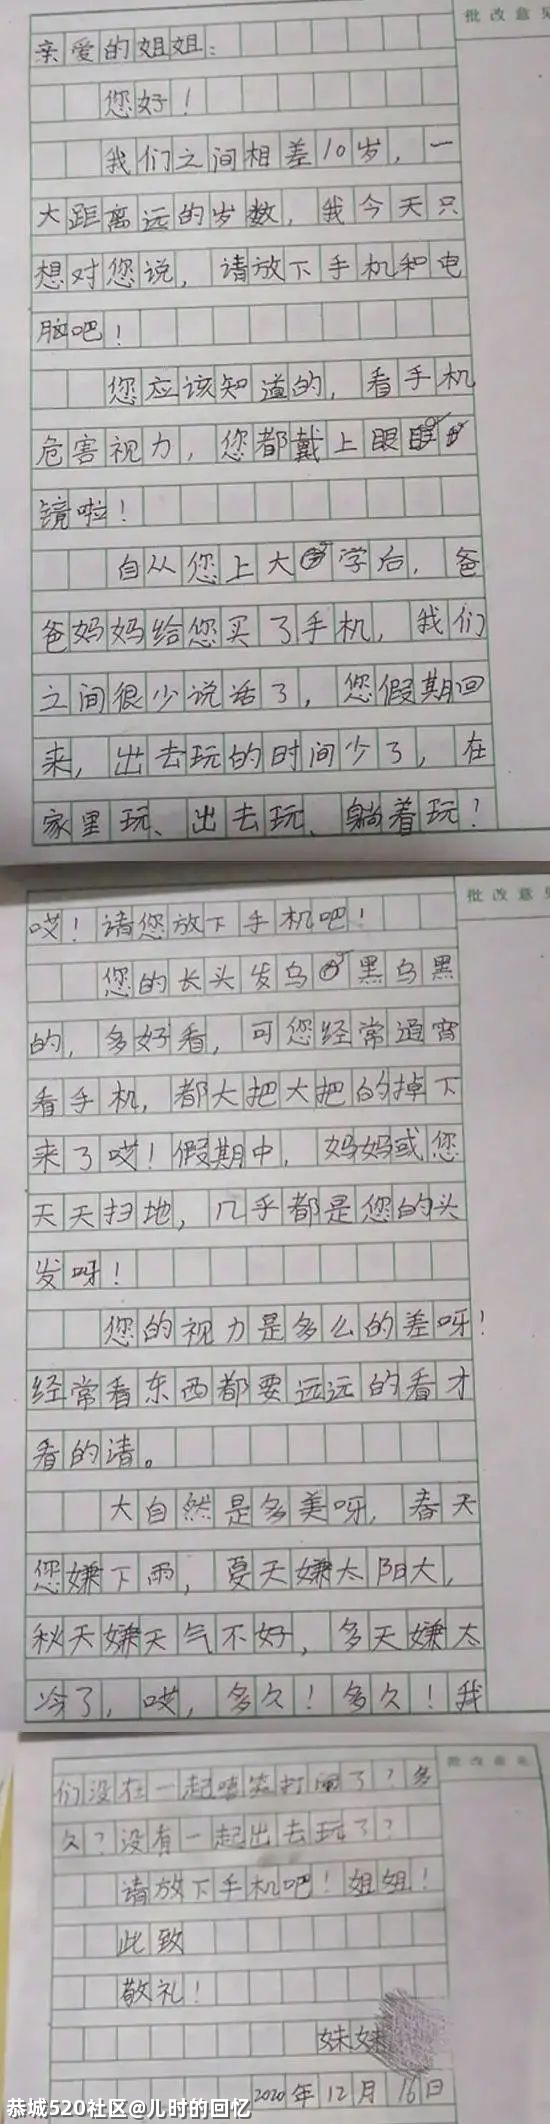 批改意见
亲爱的姐姐：
您好！
我们之间相差10岁，一
大距离远的岁数，我今天只
想对您说，请放下手机和电
脑吧！
您应该知道的，看手机
危害视力，您都戴上眼
镜啦！
自从您上大学后，爸
爸妈妈给您买了手机，我们
之间很少说话了，您假期回
来，出去玩的时间少了，在
家里玩、出去玩、躺着玩！
批改意见
哎！请您放下手机吧！
您的长头发乌黑乌黑
的，多好看，可您经常通宵
看手机，都大把大把的掉下
来了哎！假期中，妈妈或您
天天扫地，几乎都是您的头
发呀！
您的视力是多么的差呀！
经常看东西都要远远的看才
看的清。
大自然是多美呀，春天
您嫌下雨，夏天嫌太阳大，
秋天嫌天气不好，冬天嫌太
冷了，哎，多久！多久！我
批改意见
们没在一起嘻笑打闹了？多
久？没有一起出去玩了？
请放下手机吧！姐姐！
此致
敬礼！
妹妹
2020年12月16日
恭城520社区@儿时的回忆